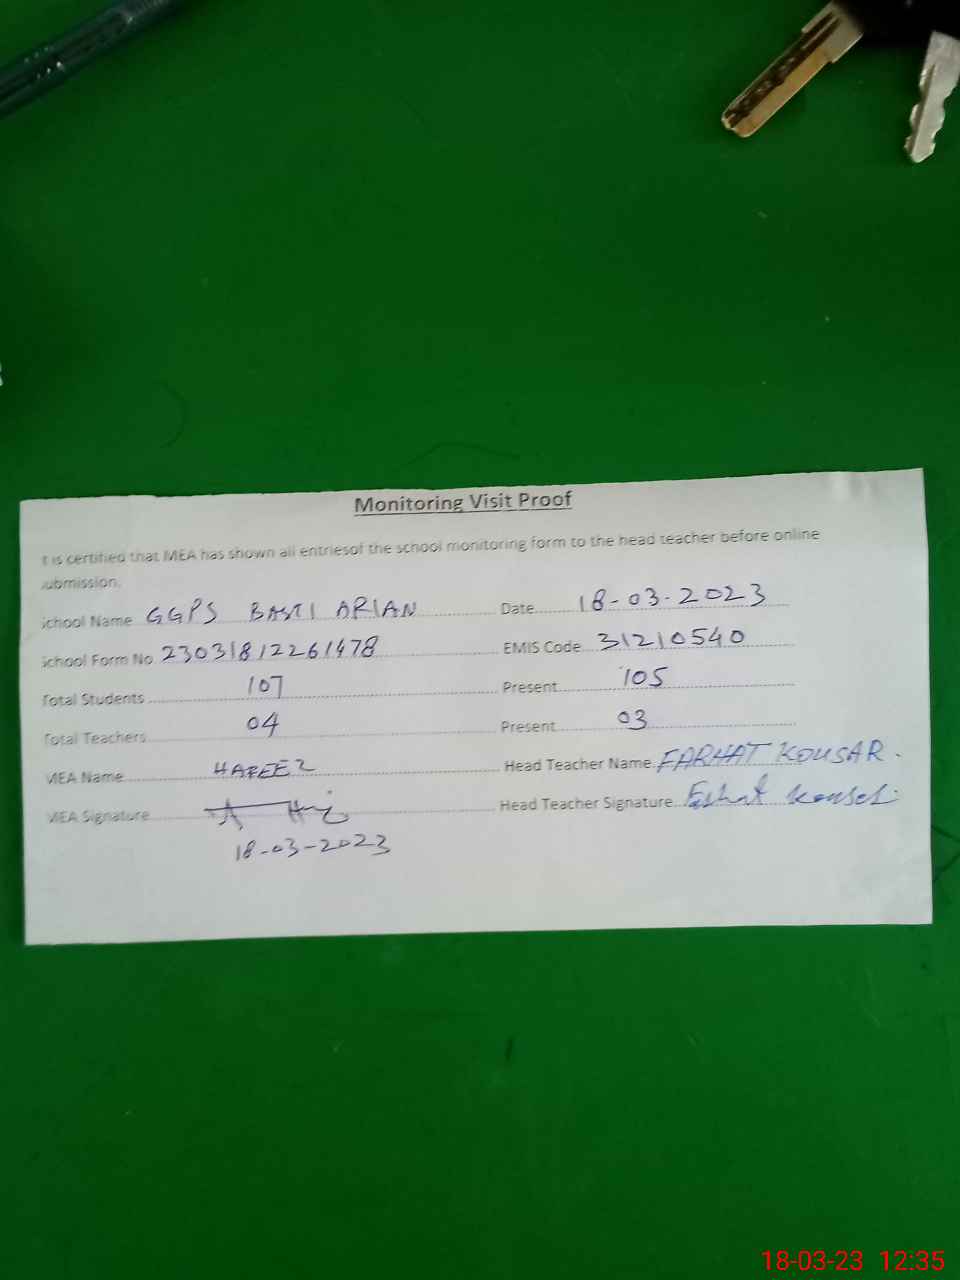 Monitoring Visit Proof
t is certified that MEA has shown all entriesof the school monitoring form to the head teacher before online
ubmission.
School Name GGPS BASTI ARIAN Date 18-03-2023
School Form No 23031812261478 EMIS Code 31210540
Total Students 107 Present 105
Total Teachers 04 Present 03
MEA Name HAFEEZ Head Teacher Name FARHAT KOUSAR.
MEA Signature Head Teacher Signature Farhat Kousar
18-03-2023
18-03-23 12:35